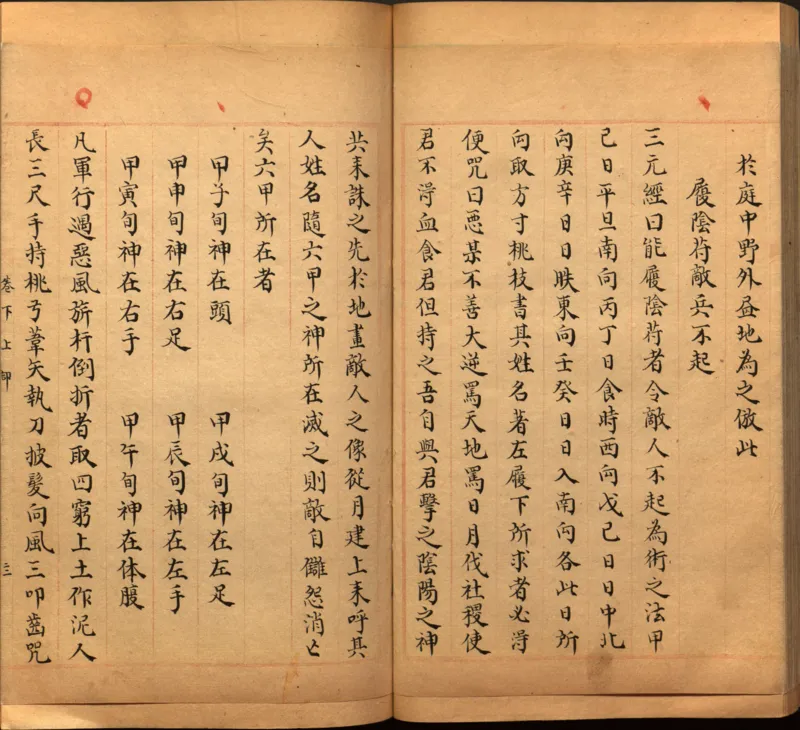 於庭中野外昼地為之倣此
履陰苻敵兵不起
三元經曰能履陰苻者令敵人不起為術之法甲
己日平旦南向丙丁日食時西向戊己日日中北
向庚辛日日昳東向壬癸日日入南向各此日所
向取方寸桃枝書其姓名著左履下所求者必淂
便咒曰悪某不善大逆罵天地罵日月伐社稷使
君不淂血食君但持之吾自與君擊之陰陽之神
共来誅之先於地畫敵人之像從月建上来呼其
人姓名隨六甲之神所在滅之則敵自讎怨消亡
矣六甲所在者
甲子旬神在頭　甲戌旬神在左足
甲申旬神在右足　甲辰旬神在左手
甲寅旬神在右手　甲午旬神在体腹
凡軍行遇惡風旂杆倒折者取四窮上土作泥人
長三尺手持桃弓葦矢執刀披髮向風三叩齒咒
卷下上卽　三